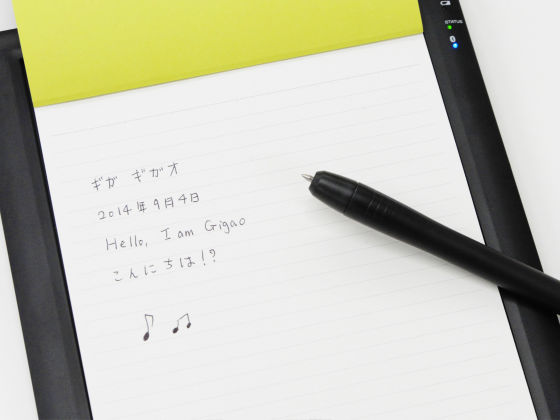 STATUS
ギガ ギガオ
2014年9月4日
Hello, I am Gigao
こんにちは!?